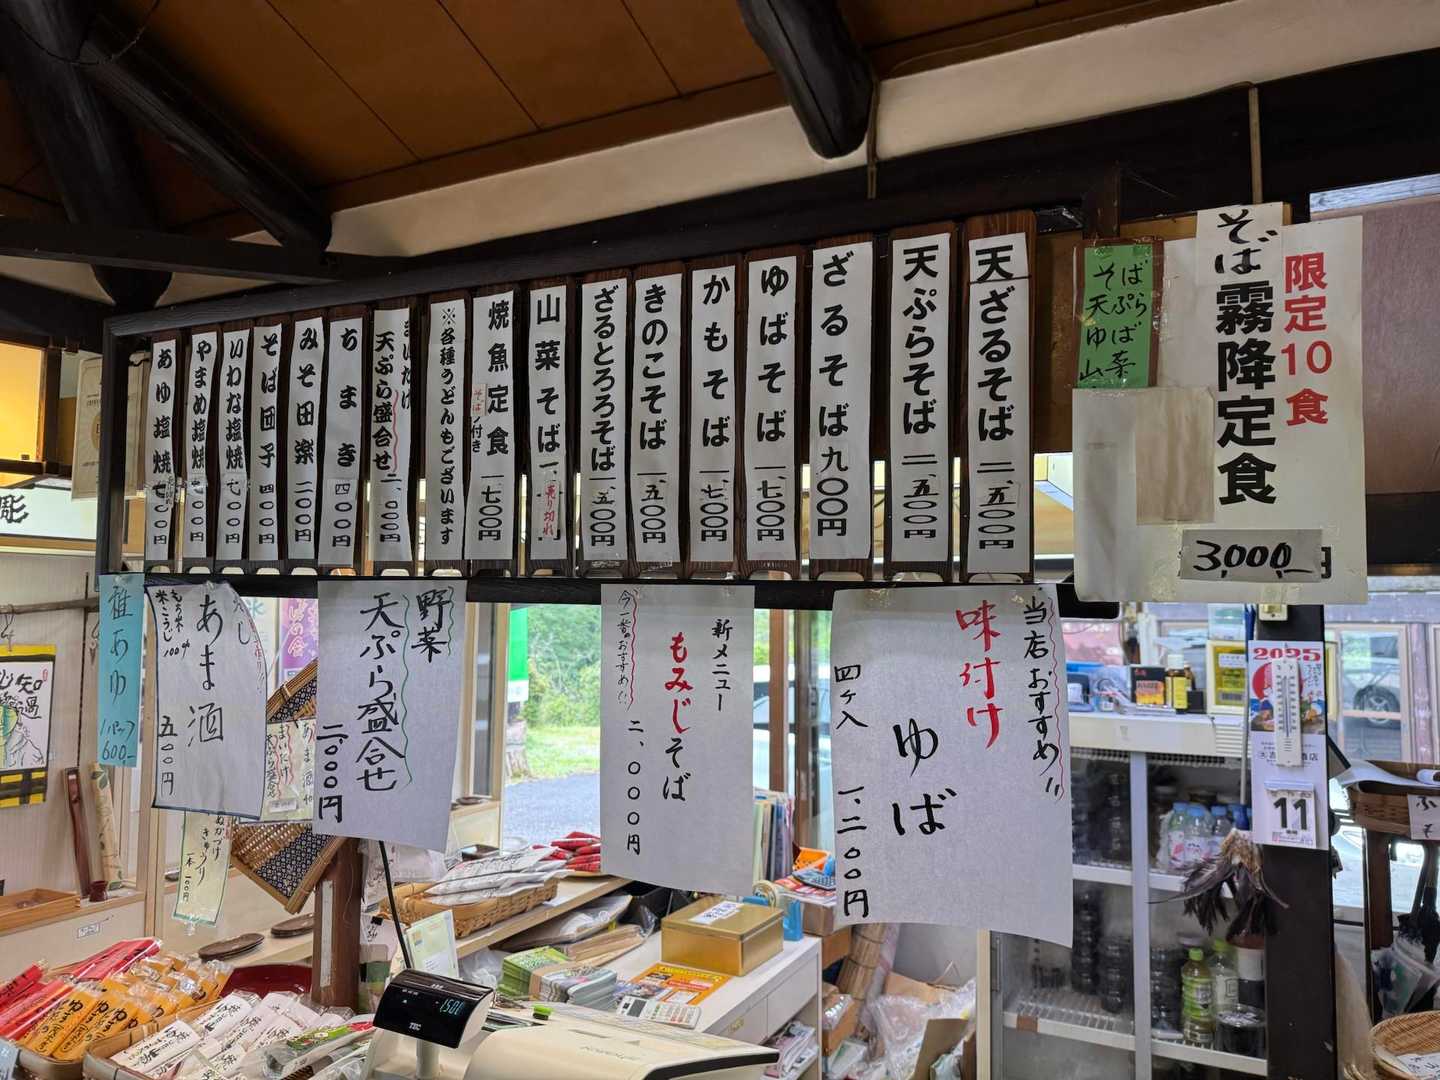 限定10食
そば霧降定食
3,000円
そば
天ぷら
ゆば
山菜
天ざるそば 二、五〇〇円
天ぷらそば 二、五〇〇円
ざるそば 九〇〇円
ゆばそば 一、七〇〇円
かもそば 一、七〇〇円
きのこそば 一、五〇〇円
ざるとろろそば 一、五〇〇円
山菜そば 一、
売り切れ
焼魚定食 一、七〇〇円
そば付き
※各種うどんもございます
まいたけ
天ぷら盛合せ 二、〇〇〇円
ちまき 四〇〇円
みそ田楽 三〇〇円
そば団子 四〇〇円
いわな塩焼 七〇〇円
やまめ塩焼 七〇〇円
あゆ塩焼 七〇〇円
当店おすすめ!!
味付け
ゆば
四ケ入 一、二〇〇円
新メニュー
もみじそば
今一番のおすすめ!!
二、〇〇〇円
野菜
天ぷら盛合せ
二、〇〇〇円
あま酒
もち米
米こうじ
100%
五〇〇円
稚あゆ
1パック
600-
きゅうり
一本 100円
2025
11
1501